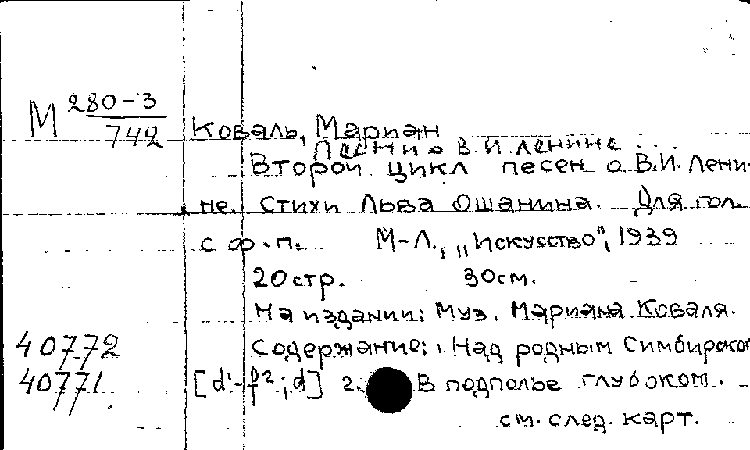 М 280-3
742
Коваль, Мариан
Песни о В.И. Ленине...
Второй цикл песен о В.И. Лени-
не. Стихи Льва Ошанина. Для гол.
с ф.-п. М-Л., „Искусство", 1939
20 стр. 30 см.
На издании: Муз. Мариана Коваля.
40772 Содержание: 1. Над родным Симбирском
40771 [d¹-f²; d] 2. В подполье глубоком.
см. след. карт.